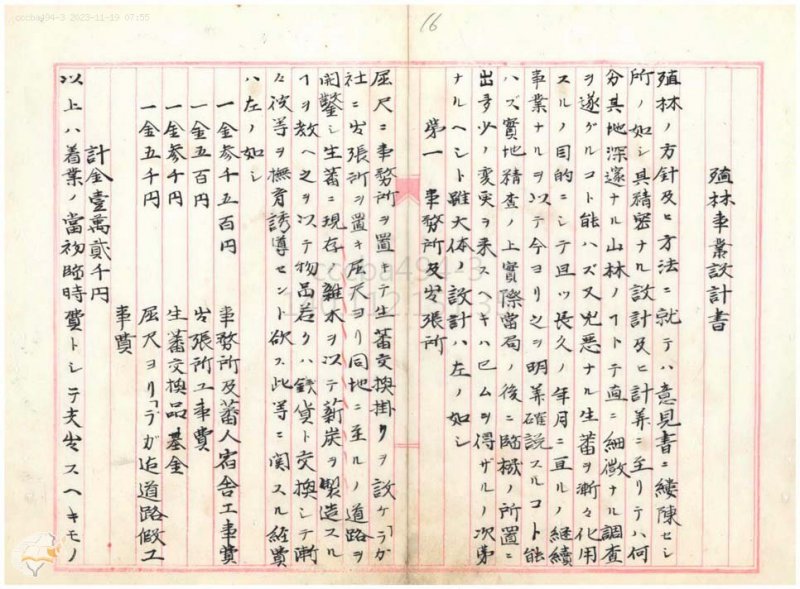 cccba494-3 2023-11-19 07:55
16
殖林事業設計書
殖林ノ方針及ヒ方法ニ就テハ意見書ニ縷陳セシ
所ノ如シ具精密ナル設計及ヒ計算ニ至リテハ何
分其地深邃ナル山林ノ┐トテ直ニ細微ナル調査
ヲ遂グルコト能ハズ又兇悪ナル生蕃ヲ漸々化用
スルノ目的ニシテ且ツ長久ノ年月ニ亘ルノ継続
事業ナルヲ以テ今ヨリ之ヲ明算確説スルコト能
ハズ實地精査ノ上實際當局ノ後ニ臨機ノ所置ニ
出多少ノ変更ヲ来スヘキハ已ムヲ得ザルノ次第
ナルヘシト雖大体ノ設計ハ左ノ如シ
第一 事務所及出張所
屈尺ニ事務所ヲ置キテ生蕃交換掛リヲ設ケ「ラガ
社ニ出張所ヲ置キ屈尺ヨリ同地ニ至ルノ道路ヲ
開鑿シ生蕃ニ現存ノ雜木ヲ以テ薪炭ヲ製造スル
┐ヲ教ヘ之ヲ以テ物品若クハ銭貨ト交換シテ漸
々彼等ヲ撫育誘導セント欲ス此等ニ関スル経費
ハ左ノ如シ
一金参千五百円 事務所及蕃人宿舎工事費
一金五百円 出張所工事費
一金参千円 生蕃交換品基金
一金五千円 屈尺ヨリ「ラガ迄道路假工
事費
計金壹萬貳千円
以上ハ着業ノ當初臨時費トシテ支出スヘキモノ
cccba494-3